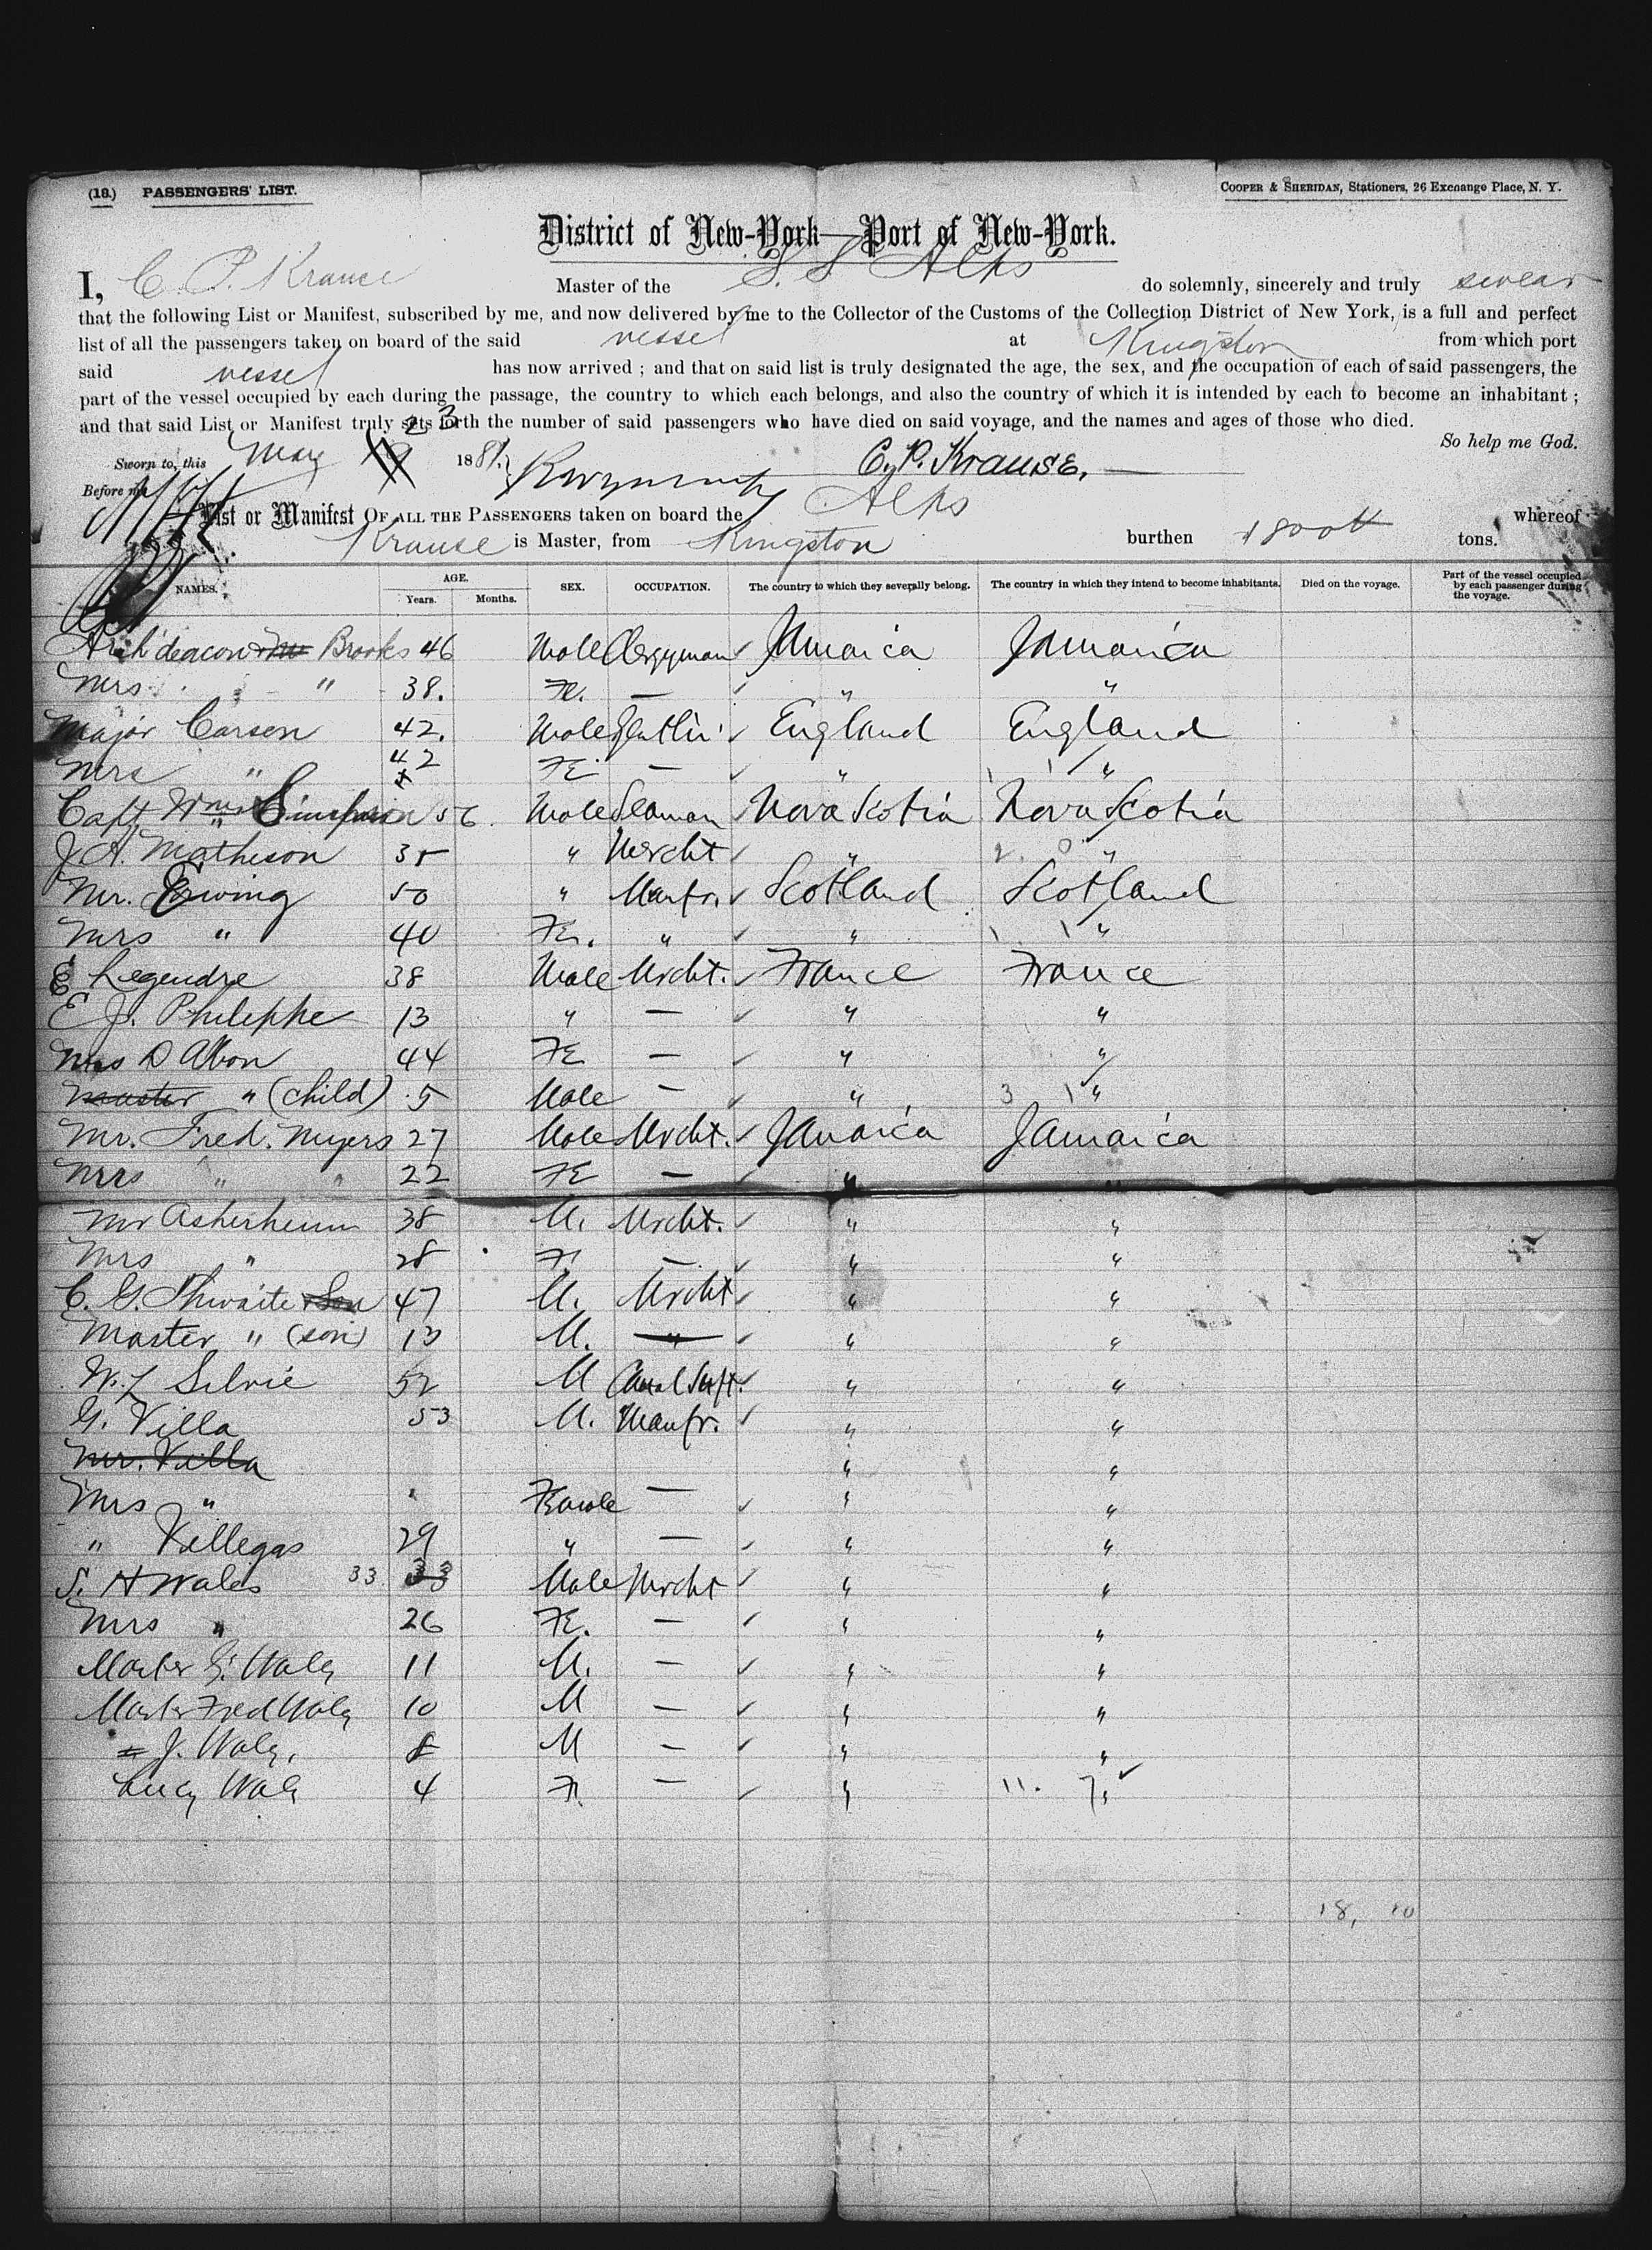 (18.) PASSENGERS' LIST.
COOPER & SHERIDAN, Stationers, 26 Exchange Place, N. Y.
District of New-York—Port of New-York.
I, C. P. Krause Master of the S. S Alps do solemnly, sincerely and truly swear
that the following List or Manifest, subscribed by me, and now delivered by me to the Collector of the Customs of the Collection District of New York, is a full and perfect
list of all the passengers taken on board of the said vessel at Kingston from which port
said vessel has now arrived ; and that on said list is truly designated the age, the sex, and the occupation of each of said passengers, the
part of the vessel occupied by each during the passage, the country to which each belongs, and also the country of which it is intended by each to become an inhabitant ;
and that said List or Manifest truly sets forth the number of said passengers who have died on said voyage, and the names and ages of those who died.
So help me God.
Sworn to, this May 23 1881. C. P. Krause.
Before me
List or Manifest OF ALL THE PASSENGERS taken on board the Alps whereof
Krause is Master, from Kingston burthen 1800 tons.
NAMES. AGE. Years. Months. SEX. OCCUPATION. The country to which they severally belong. The country in which they intend to become inhabitants. Died on the voyage. Part of the vessel occupied by each passenger during the voyage.
Archdeacon Brooks 46 Male Clergyman Jamaica Jamaica
Mrs " 38. Fe. — " "
Major Carson 42. Male England England
Mrs " 42 Fe — " "
Capt Wm Simpson 56 Male Seaman Nova Scotia Nova Scotia
J A. Matheson 35 " Mercht " "
Mr. Ewing 50 " Manfr. Scotland Scotland
Mrs " 40 Fe. " " "
E Legendre 38 Male Mrcht. France France
E J. Philephe 13 " — " "
Mrs D Albon 44 Fe — " "
Master " (child) 5 Male — " "
Mr. Fred. Myers 27 Male Mrcht. Jamaica Jamaica
Mrs " " 22 Fe — " "
Mr Asherheim 38 M. Mrcht. " "
Mrs " 28 F. — " "
C. G. Thwaite & Son 47 M. Mrcht " "
Master " (son) 13 M. " " "
W. L Silvie 52 M Canal Supt. " "
G. Villa 53 M. Manfr. " "
Mr. Villa " "
Mrs " " Female — " "
" Villegas 29 " — " "
S. H Wales 33 33 Male Mrcht " "
Mrs " 26 Fe. — " "
Master G. Wales 11 M. — " "
Master Fred Wales 10 M — " "
" J. Wales. 8 M — " "
Lucy Wales 4 F. — " 11. 7.
18, 10